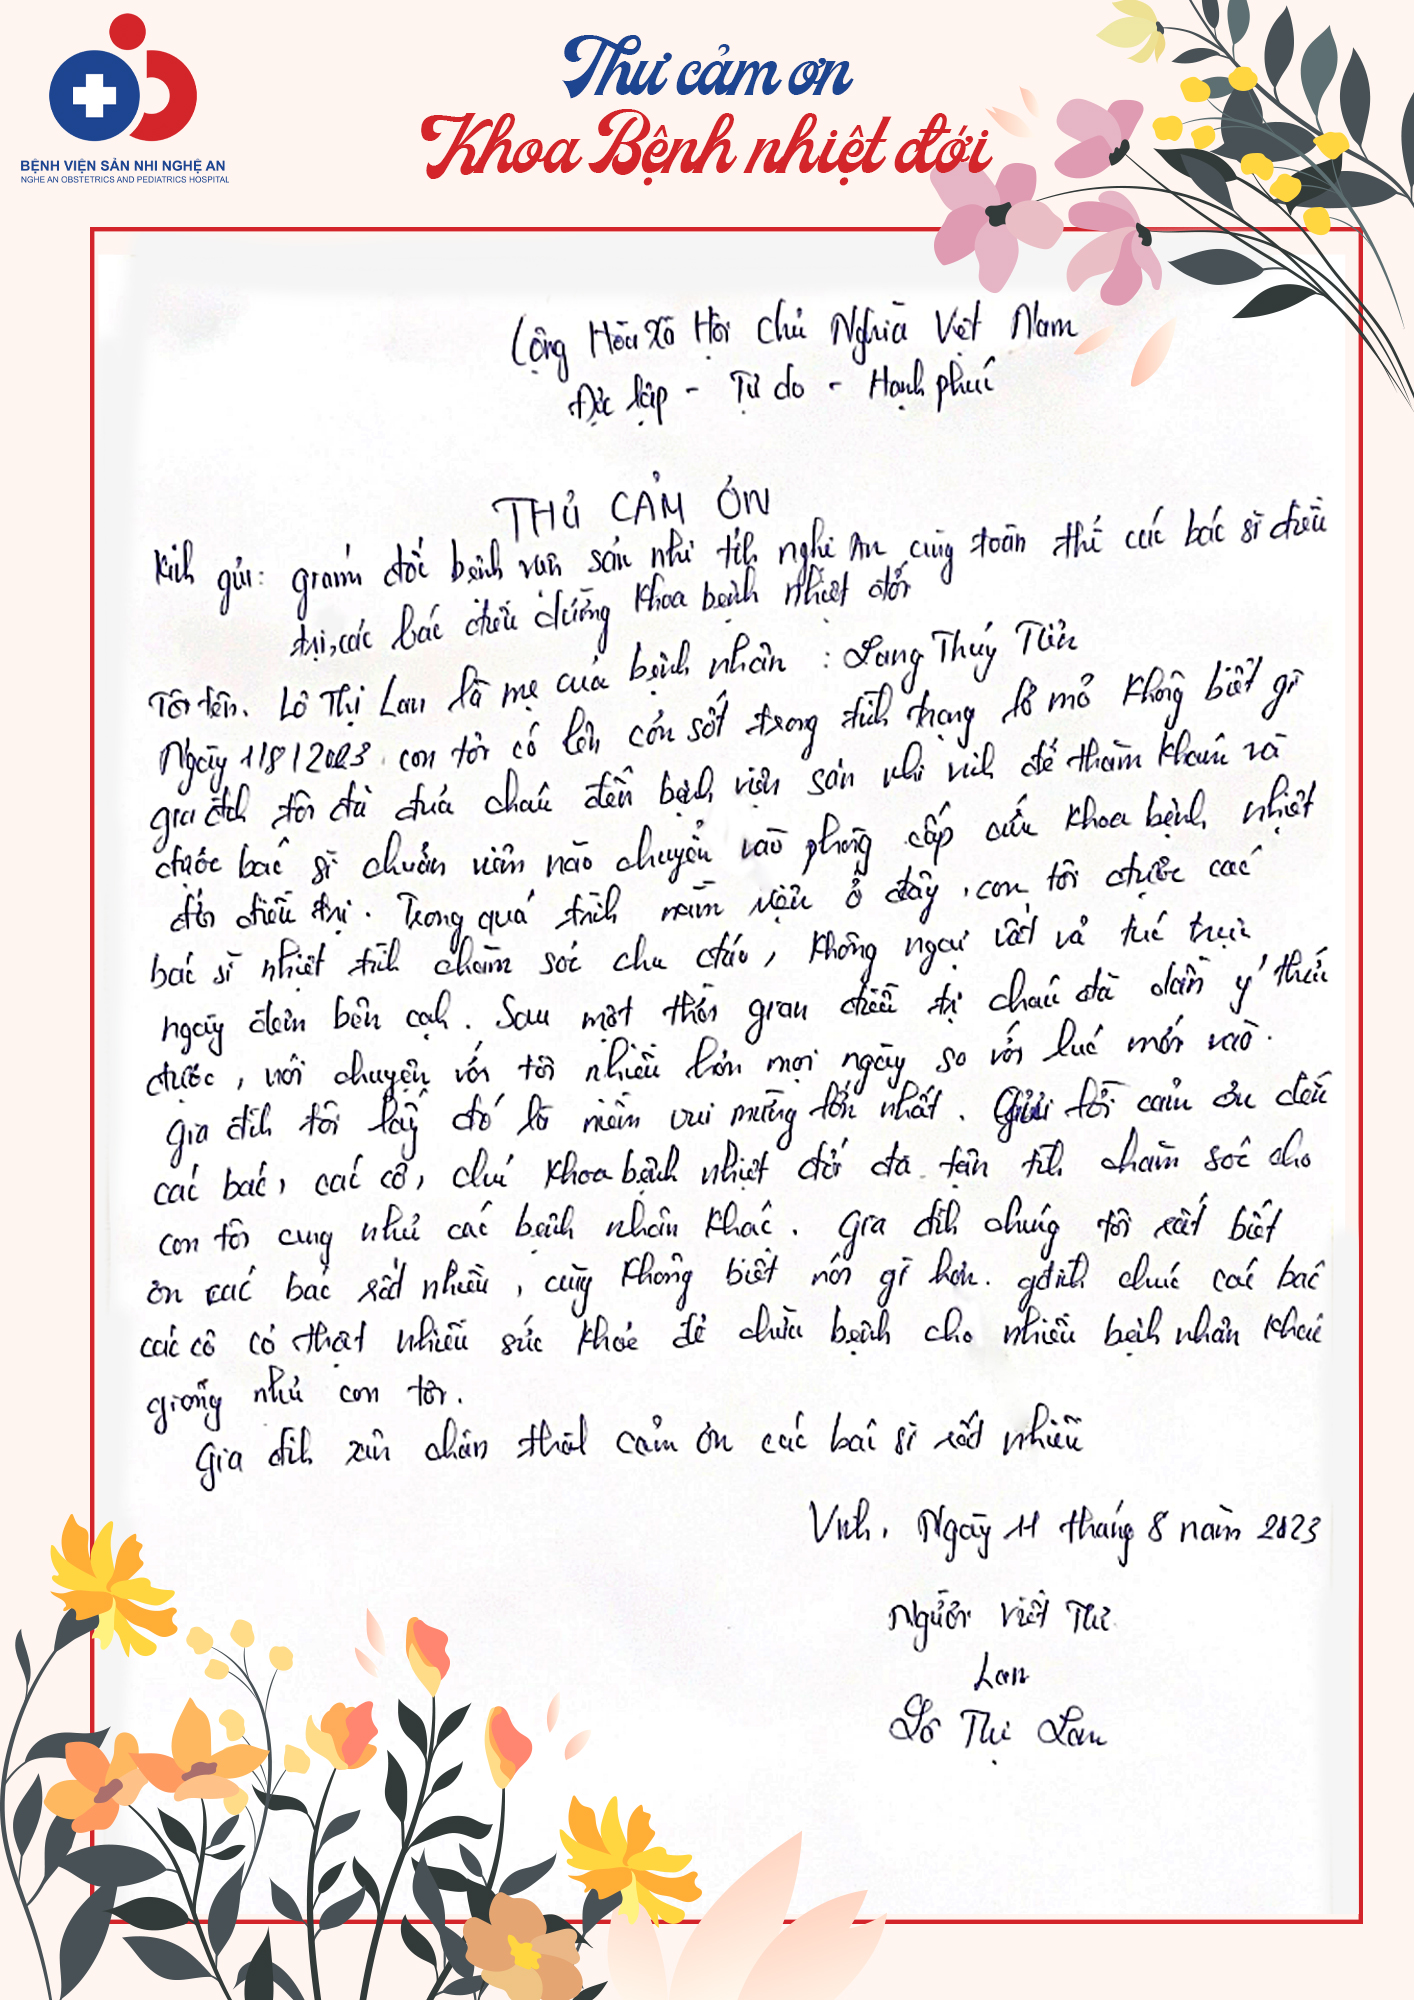 BỆNH VIỆN SẢN NHI NGHỆ AN
NGHE AN OBSTETRICS AND PEDIATRICS HOSPITAL
Thư cảm ơn
Khoa Bệnh nhiệt đới
Cộng Hòa Xã Hội Chủ Nghĩa Việt Nam
Độc lập - Tự do - Hạnh phúc
THƯ CẢM ƠN
Kính gửi: giám đốc bệnh viện sản nhi tỉnh nghệ An cùng toàn thể các bác sĩ điều
trị, các bác điều dưỡng khoa bệnh nhiệt đới
Tôi tên. Lô Thị Lan là mẹ của bệnh nhân : Lang Thúy Tiên
Ngày 1/8/2023. con tôi có lên cơn sốt trong tình trạng lơ mơ không biết gì
gia đình tôi đã đưa cháu đến bệnh viện sản nhi vinh để thăm khám và
được bác sĩ chuẩn viêm não chuyển vào phòng cấp cứu khoa bệnh nhiệt
đới điều trị. Trong quá trình nằm viện ở đây, con tôi được các
bác sĩ nhiệt tình chăm sóc chu đáo, không ngại vất vả túc trực
ngày đêm bên cạnh. Sau một thời gian điều trị cháu đã dần ý thức
được, nói chuyện với tôi nhiều hơn mọi ngày so với lúc mới vào.
Gia đình tôi lấy đó là niềm vui mừng lớn nhất. Gửi lời cảm ơn đến
các bác, các cô, chú khoa bệnh nhiệt đới đã tận tình chăm sóc cho
con tôi cũng như các bệnh nhân khác. Gia đình chúng tôi rất biết
ơn các bác rất nhiều, cũng không biết nói gì hơn. gđình chúc các bác
các cô có thật nhiều sức khỏe để chữa bệnh cho nhiều bệnh nhân khác
giống như con tôi.
Gia đình xin chân thật cảm ơn các bác sĩ rất nhiều
Vinh, Ngày 11 tháng 8 năm 2023
Người viết Thư
Lan
Lô Thị Lan